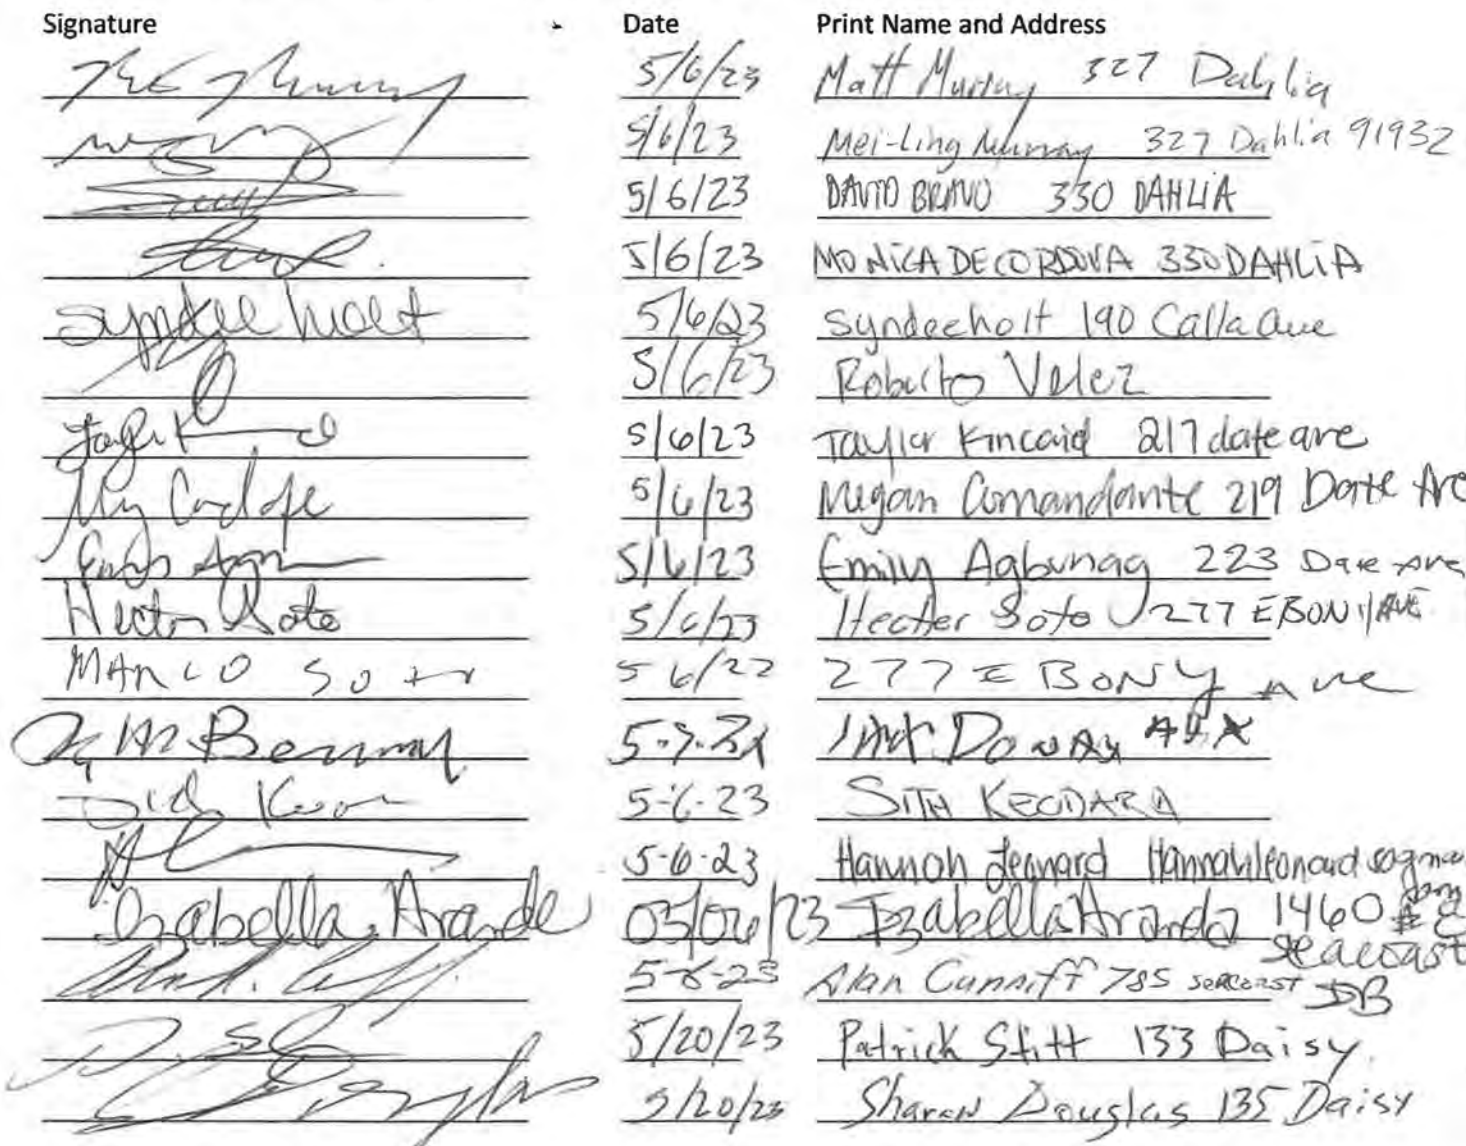 Signature Date Print Name and Address
5/6/23 Matt Murray 327 Dahlia
5/6/23 Mei-Ling Murray 327 Dahlia 91932
5/6/23 DAVID BRAVO 330 DAHLIA
5/6/23 MONICA DE CORDOVA 330 DAHLIA
Syndee Holt 5/6/23 Syndeeholt 190 Calla ave
5/6/23 Roberto Velez
5/6/23 Taylor Kincaid 217 date ave
5/6/23 Megan Comandante 219 Date Ave
5/6/23 Emily Agbunag 223 Date Ave
Hector Soto 5/6/23 Hecter Soto 277 EBONY AVE
MARCO Soto 5 6/22 277 EBONY Ave
Berman
5-6-23 SITH KEODARA
5-6-23 Hannah Leonard
Izabella Aranda 05/06/23 Izabella Aranda 1460
seacoast
5-6-23 Alan Cunniff 785 seacoast IB
5/20/23 Patrick Stitt 133 Daisy.
Douglas 5/20/23 Sharon Douglas 135 Daisy